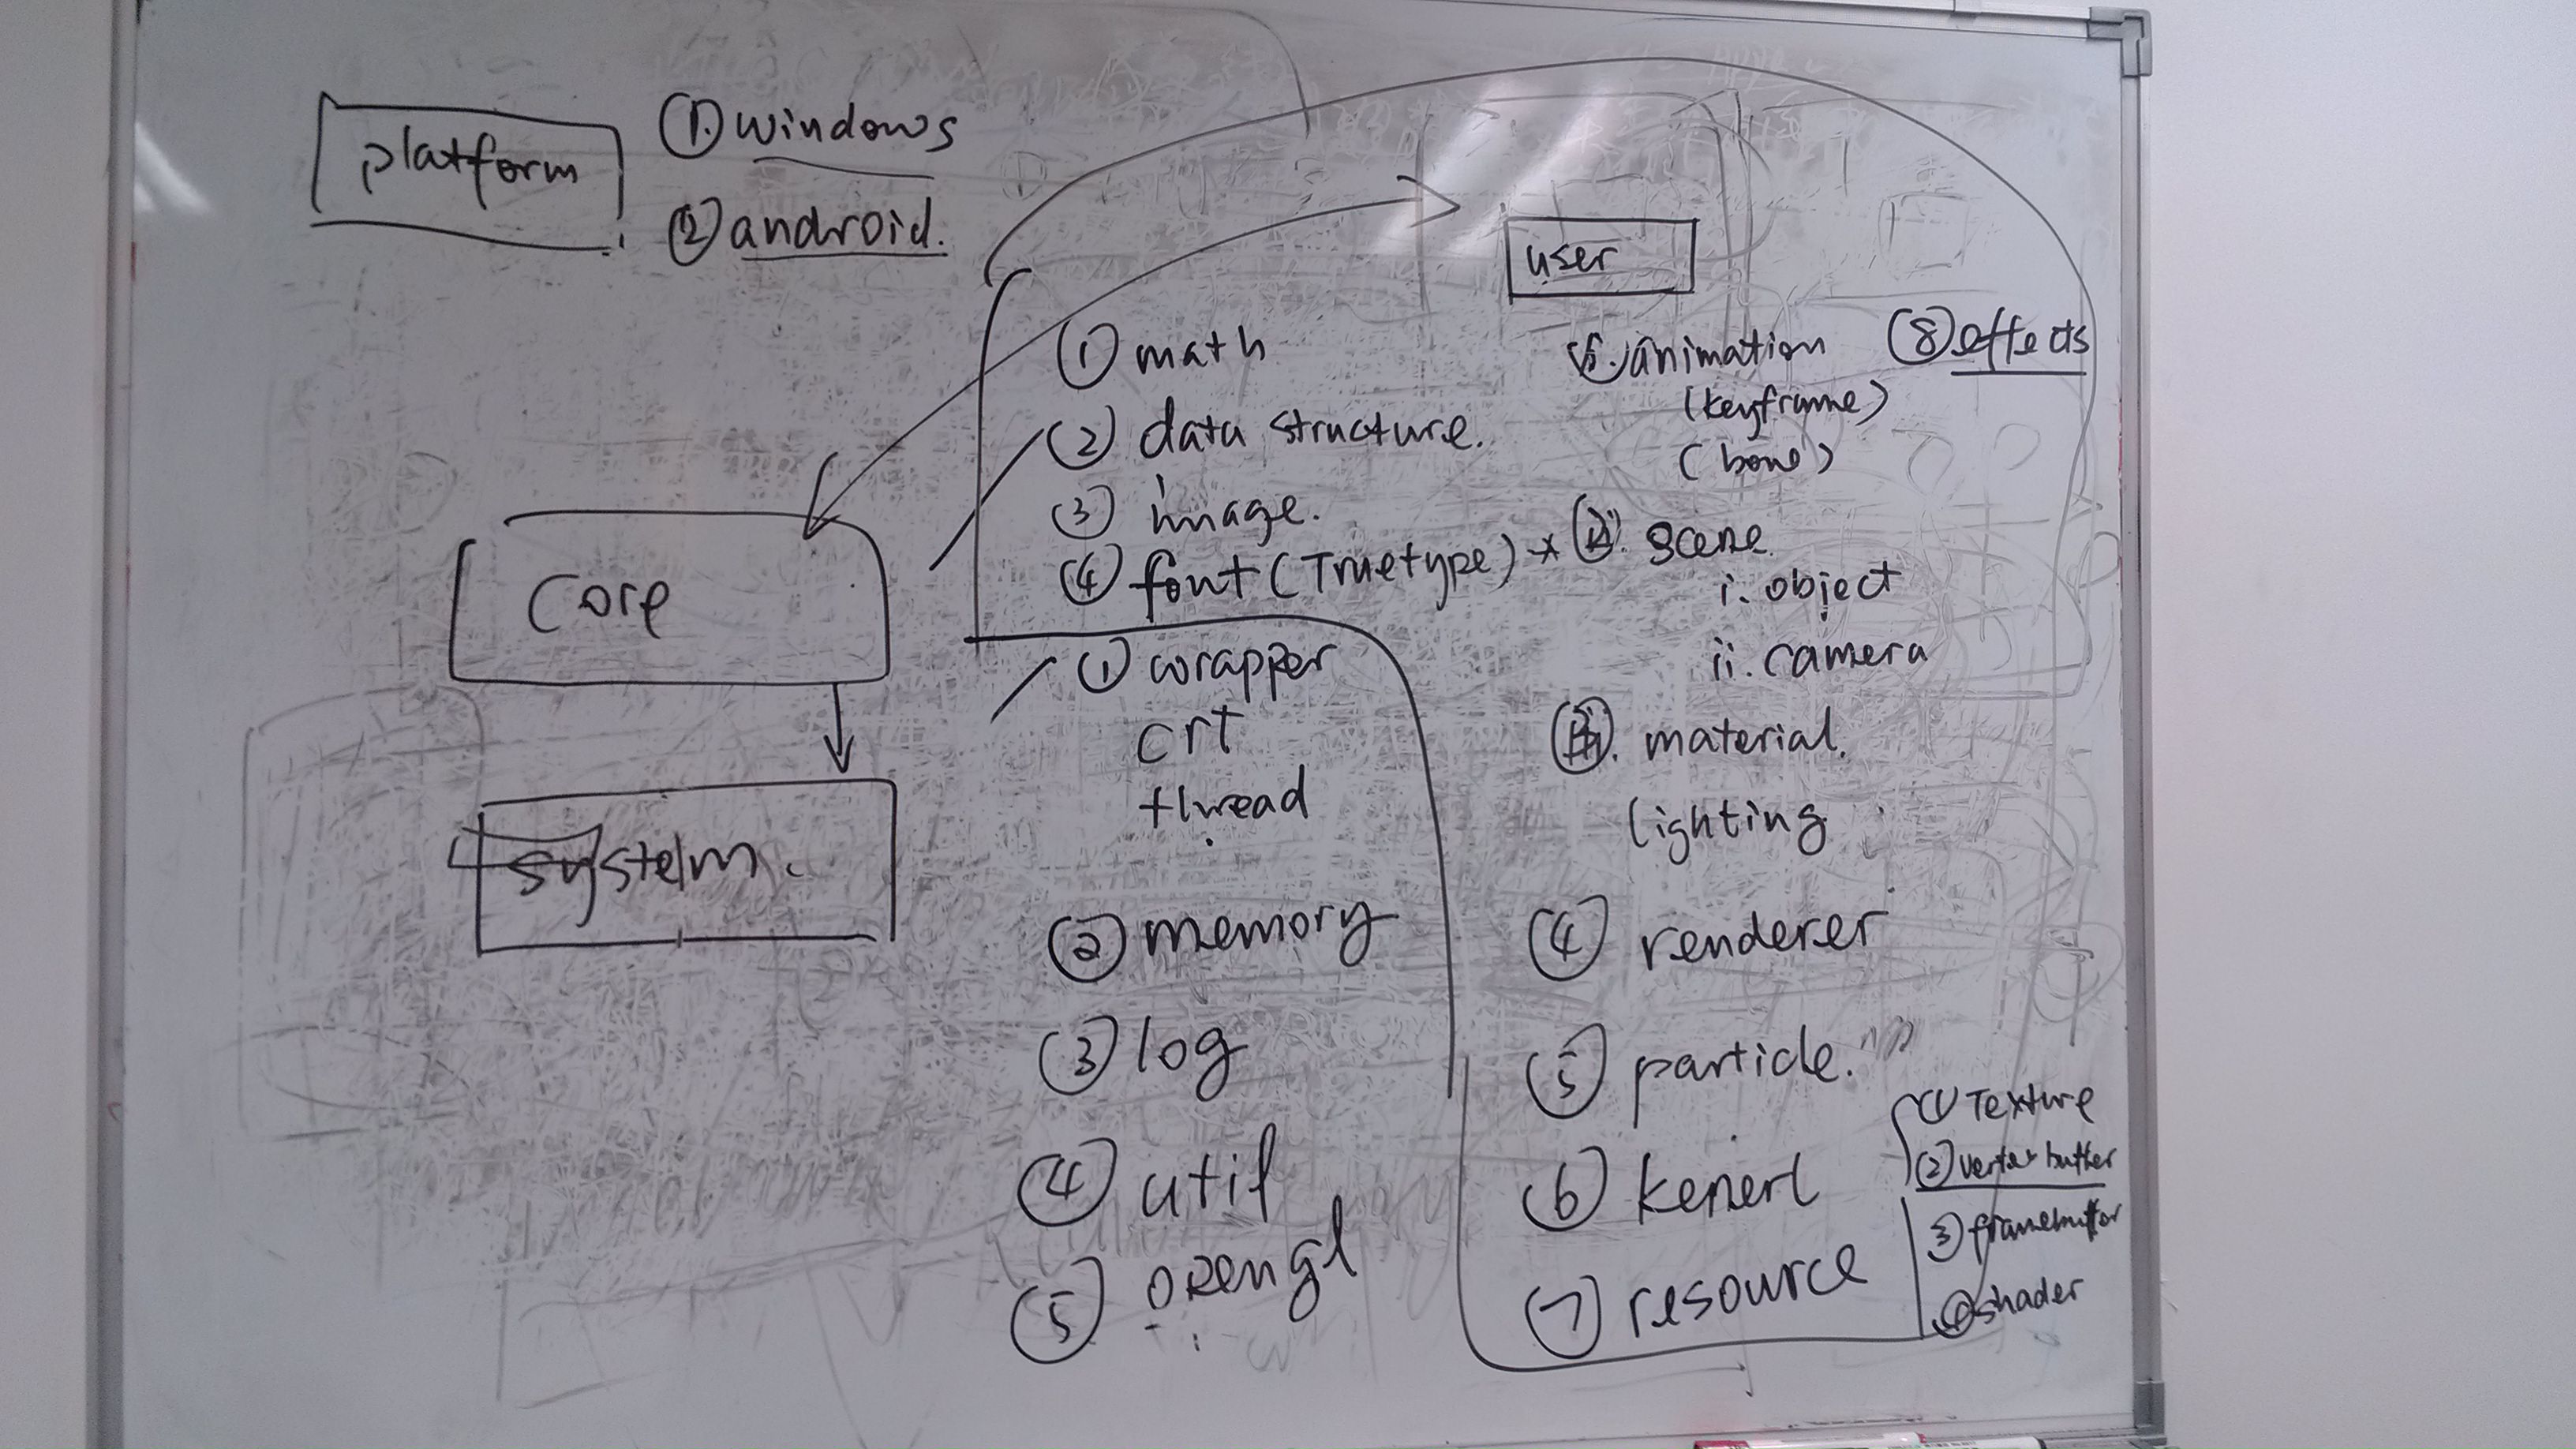 platform
① windows
② android.
user
core
system.
① math
② data structure.
③ image.
④ font (Truetype) *
① wrapper
crt
thread
② memory
③ log
④ util
⑤ opengl
animation
(keyframe)
(bone)
⑧ effects
scene
i. object
ii. camera
material.
lighting
④ renderer
⑤ particle.
⑥ kenerl
⑦ resource
① Texture
② vertex buffer
③ framebuffer
④ shader